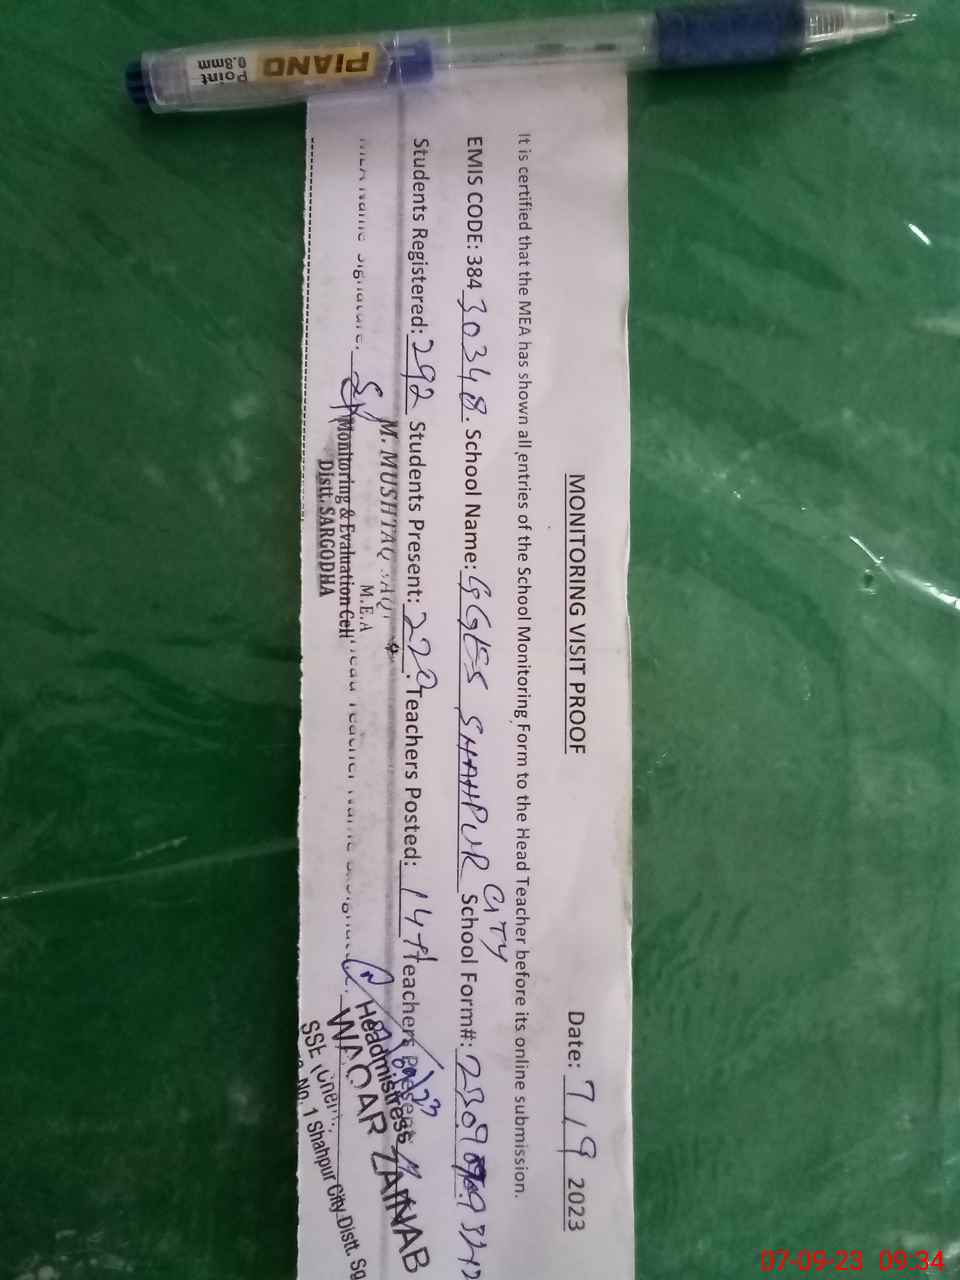 PIANO
Point
0.8mm
MONITORING VISIT PROOF
Date: 7/9 2023
It is certified that the MEA has shown all entries of the School Monitoring Form to the Head Teacher before its online submission.
EMIS CODE: 384 30348. School Name: GGES SHAHPUR CITY School Form#:
Students Registered: 292 Students Present: 220. Teachers Posted: 14 Teachers Present
MEA Name Signature: Head Teacher Name
M. MUSHTAQ
M.E.A
Monitoring & Evaluation Cell
Distt. SARGODHA
Headmistress
WAQAR ZAINAB
SSE
No. 1 Shahpur City Distt. Sg
07-09-23 09.34